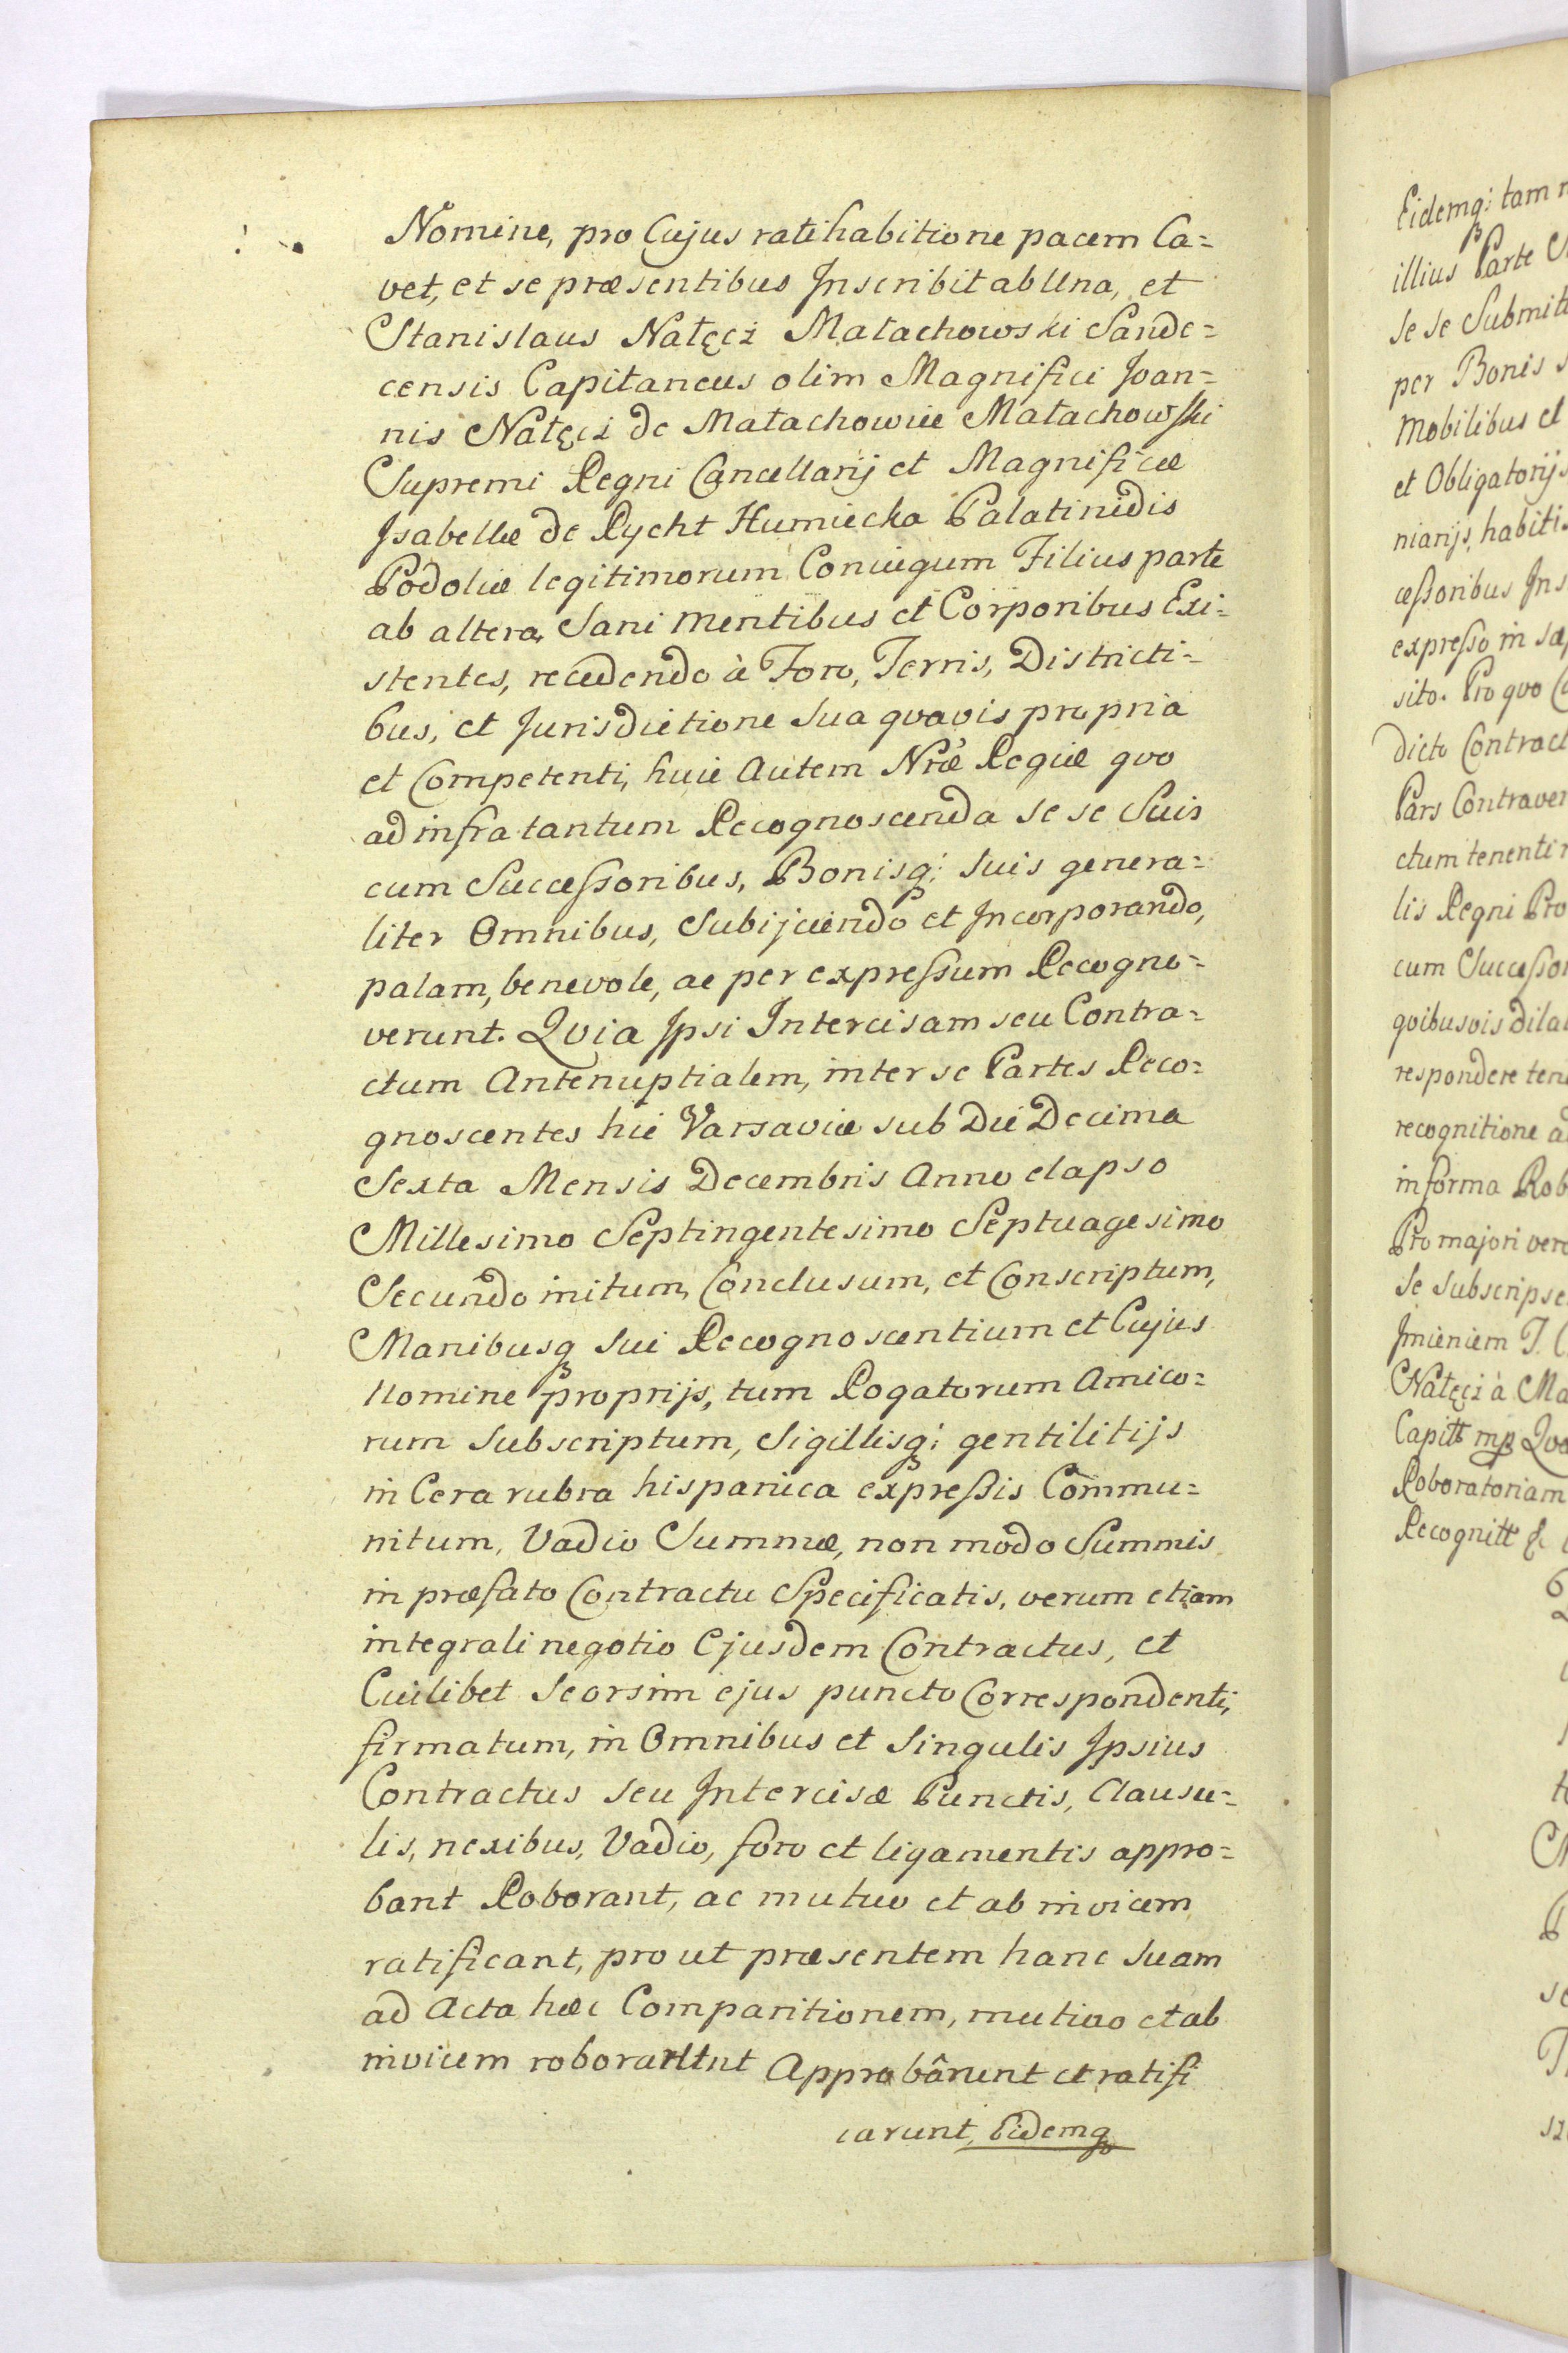 Nomine, pro Cujus ratihabitione pacem Ca=
vet, et se præsentibus Inscribit ab Una, et
Stanislaus Nałęcż Małachowski Sande=
censis Capitaneus olim Magnifici Joan=
nis Nałęcż de Małachowice Małachowski
Supremi Regni Cancellarij et Magnificæ
Isabellæ de Rycht Humiecka Palatinidis
Podoliæ legitimorum Coniugum Filius parte
ab altera, Sani mentibus et Corporibus Exi=
stentes, recedendo à Foro, Terris, Districti=
bus, et Jurisdictione Sua qvavis propria
et Competenti, huic Autem Nræ Regiæ qvo
ad infra tantum Recognoscenda se se Suis
cum Successoribus, Bonisq; suis genera=
liter Omnibus, Subijciendo et Incorporando,
palam, benevole, ac per expressum Recogno=
verunt. Qvia Ipsi Intercisam seu Contra=
ctum Antenuptialem, inter se Partes Reco=
gnoscentes hic Varsaviæ sub Die Decima
Sexta Mensis Decembris Anno elapso
Millesimo Septingentesimo Septuagesimo
Secundo initum, Conclusum, et Conscriptum,
Manibusq sui Recognoscentium et Cujus
Nomine proprijs, tum Rogatorum Amico=
rum Subscriptum, Sigillisq; gentilitijs
in Cera rubra hispanica expressis Commu=
nitum, Vadio Summæ, non modo Summis
in præfato Contractu Specificatis, verum etiam
integrali negotio Ejusdem Contractus, et
Cuilibet Seorsim ejus puncto Correspondenti,
firmatum, in Omnibus et Singulis Ipsius
Contractus seu Intercisæ Punctis, Clausu=
lis, nexibus, Vadio, foro et ligamentis appro=
bant Roborant, ac mutuo et ab invicem
ratificant, prout præsentem hanc Suam
ad Acta hæc Comparitionem, mutuo et ab
invicem roborarunt Approbârunt et ratifi
carunt, Eidemq
Eidemq; tam
illius Parte
se se Submit
per Bonis
Mobilibus et
et Obligatorijs
niarijs, habitis
cessoribus Ins
expresso in sæ
sito. Pro qvo
dicto Contract
Pars Contraven
ctum tenenti
lis Regni Pro
cum Successor
qvibusvis dila
respondere ten
recognitione a
in forma Rob
Pro majori vero
se subscripse
Imieniem J.
Nałęcż à Ma
Capitt mp Qvo
Roboratoriam
Recognitt &